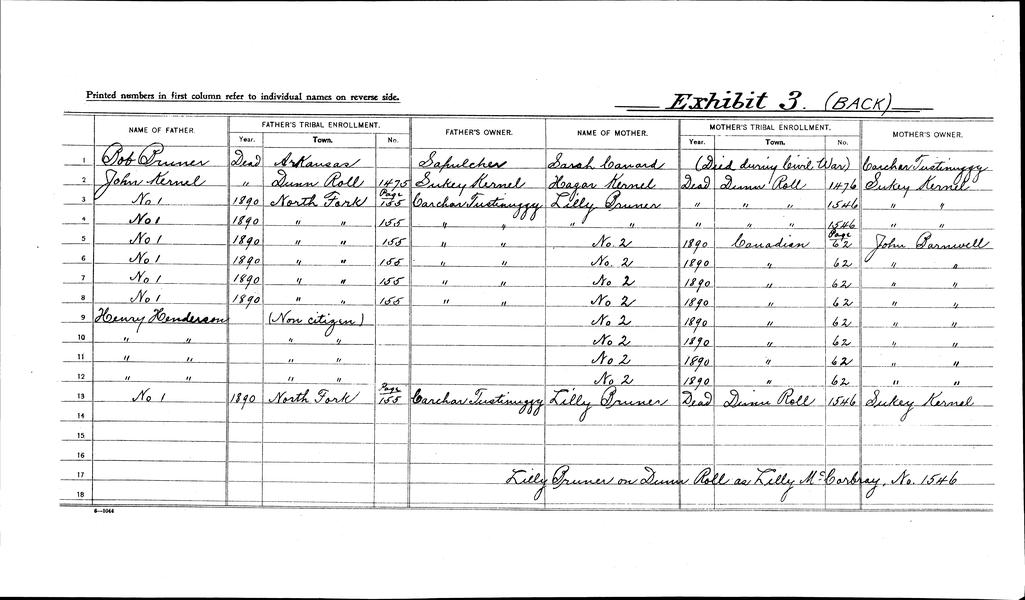 Printed numbers in first column refer to individual names on reverse side.
Exhibit 3. (BACK)
NAME OF FATHER. FATHER'S TRIBAL ENROLLMENT. FATHER'S OWNER. NAME OF MOTHER. MOTHER'S TRIBAL ENROLLMENT. MOTHER'S OWNER.
Year. Town. No. Year. Town. No.
1 Bob Bruner Dead Arkansas Sapulcher Sarah Canard (Died during Civil War) Carchar Tustinuggy
2 John Kernel " Dunn Roll 1475 Sukey Kernel Hagar Kernel Dead Dunn Roll 1476 Sukey Kernel
3 No 1 1890 North Fork Page 155 Carchar Tustinuggy Lilly Bruner " " " 1546 " "
4 No 1 1890 " " 155 " " " " " " " 1546 " "
5 No 1 1890 " " 155 " " No. 2 1890 Canadian Page 62 John Barnwell
6 No 1 1890 " " 155 " " No. 2 1890 " 62 " "
7 No 1 1890 " " 155 " " No 2 1890 " 62 " "
8 No 1 1890 " " 155 " " No 2 1890 " 62 " "
9 Henry Henderson (Non citizen) No 2 1890 " 62 " "
10 " " " " No 2 1890 " 62 " "
11 " " " " No 2 1890 " 62 " "
12 " " " " No 2 1890 " 62 " "
13 No 1 1890 North Fork Page 155 Carchar Tustinuggy Lilly Bruner Dead Dunn Roll 1546 Sukey Kernel
14
15
16
17 Lilly Bruner on Dunn Roll as Lilly McCorbray, No. 1546
18
6-1044